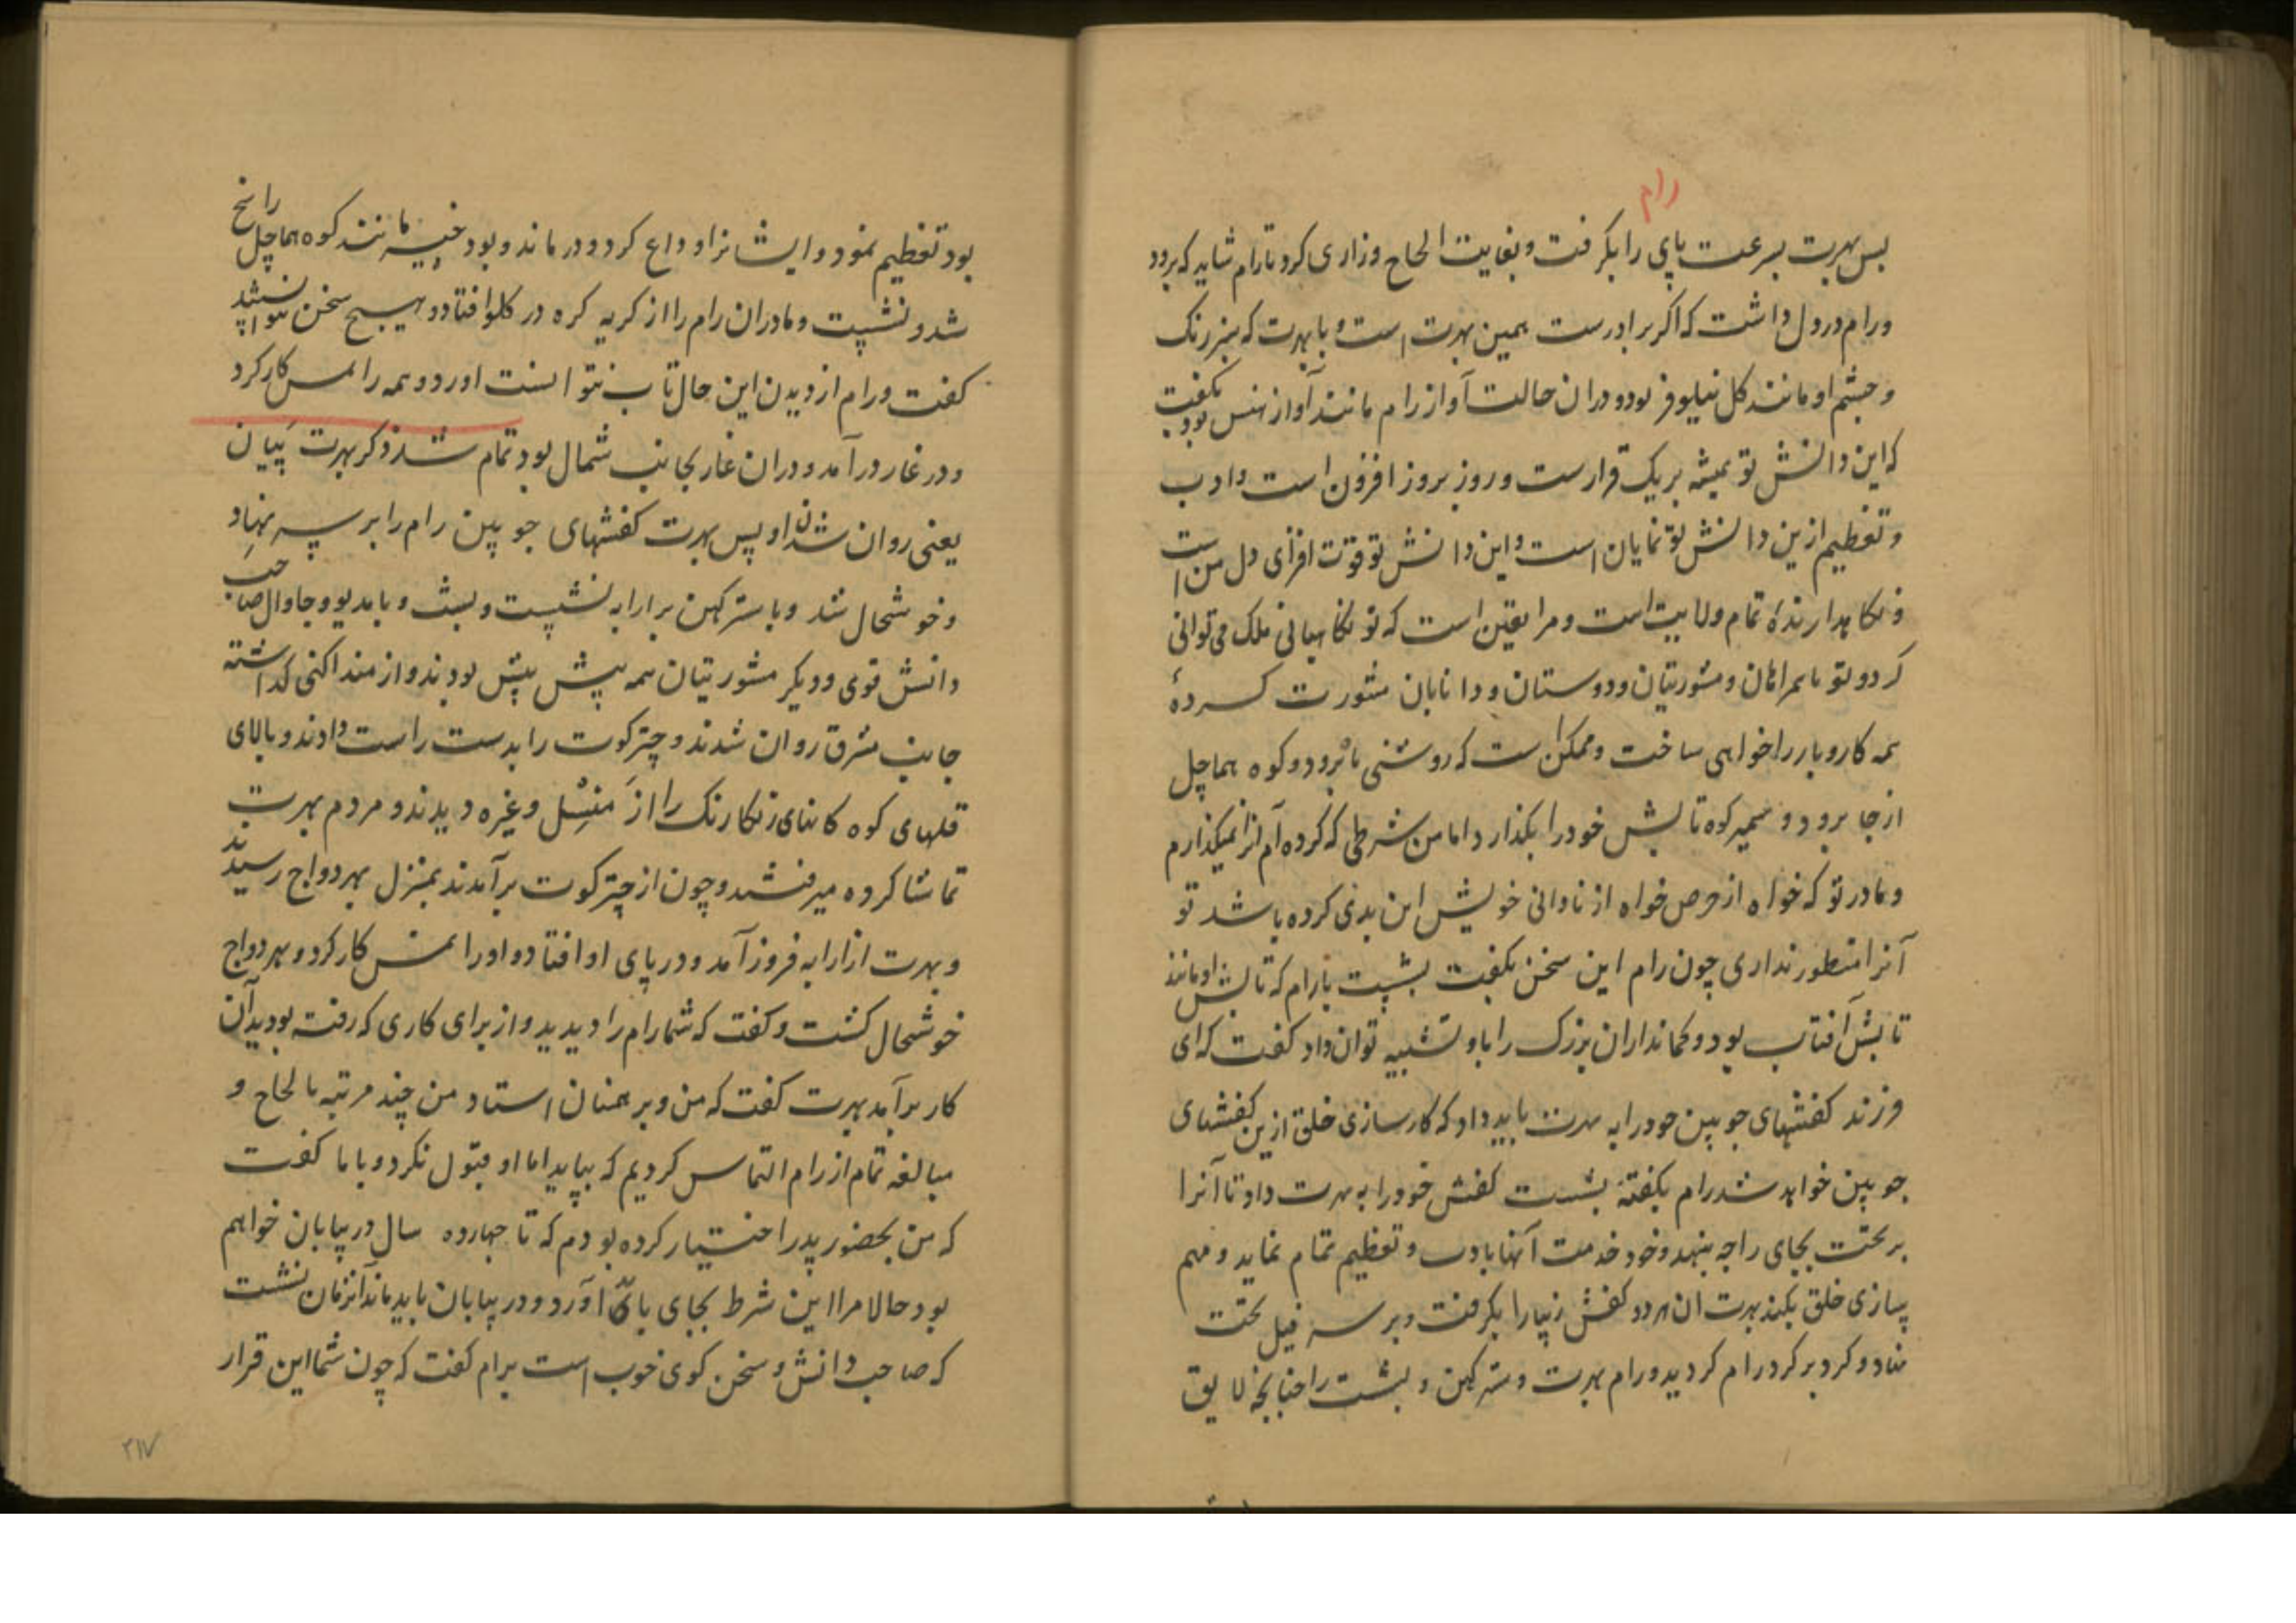 رام
پس بهرت بسرعت پای را بگرفت و بغایت الحاح و زاری کرد تا رام شاید که برود
و رام در دل داشت که اگر برادرست همین بهرت است و با بهرت که سبز رنگ
و چشم او مانند گل نیلوفر بود و دران حالت آواز رام مانند آواز هنس بود بگفت
که این دانش تو همیشه بریک قرارست و روز بروز افزون است و ادب
و تعظیم ازین دانش تو نمایان است و این دانش تو قوت افزای دل من است
و نگاهدارندهٔ تمام ولایت است و مرا یقین است که تو نگاهبانی ملک می توانی
کرد و تو با همراهان و مشورتیان و دوستان و دانایان مشورت کردهٔ
همه کار و بار را خواهی ساخت و ممکن است که روشنی ماه برود و کوه هماچل
از جا برود و سمیر کوه تابش خود را بگذارد اما من شرطی که کرده ام آنرا نمیگذارم
و مادر تو که خواه از حرص خواه از نادانی خویش این بدی کرده باشد تو
آنرا منظور نداری چون رام این سخن بگفت بشست با رام که تابش او مانند
تابش آفتاب بود و کمانداران بزرگ را باو تشبیه توان داد گفت که ای
فرزند کفشهای چوبین خود را به بهرت باید داد که کارسازی خلق ازین کفشهای
چوبین خواهد شد رام بگفتهٔ بشست کفش خود را به بهرت داد تا آنرا
بر تخت بجای راجه بنهد و خود خدمت آنها بادب و تعظیم تمام نماید و مهم
سازی خلق بکند بهرت آن هر دو کفش زیبا را بگرفت و بر سر فیل تخت
نهاد و گرد بر گرد رام گردید و رام بهرت و سترگهن و بشست را چنانچه لایق
بود تعظیم نمود و ایشانرا وداع کرد و درماند و بود خیمه مانند کوه هماچل راسخ
شد و نشست و مادران رام را از گریه گره در گلو افتاد و هیچ سخن نتوانستند
گفت و رام از دیدن این حال تاب نتوانست آورد و همه را نمسکار کرد
و در غار درآمد و دران غار بجانب شمال بود تمام شد ذکر بهرت پیان
یعنی روان شدن او پس بهرت کفشهای چوبین رام را بر سر نهاد
و خوشحال شد و با سترگهن بر ارابه نشست و بشست و بامدیو و جاوال صاحب
دانش قوی و دیگر مشورتیان همه پیش پیش بودند و از منداکنی گذاشته
جانب مشرق روان شدند و چترکوت را بدست راست دادند و بالای
قلهای کوه کانهای رنگارنگ را از منسل و غیره دیدند و مردم بهرت
تماشا کرده میرفتند و چون از چترکوت برآمدند بمنزل بهردواج رسیدند
و بهرت از ارابه فرود آمد و در پای او افتاده او را نمسکار کرد و بهردواج
خوشحال گشت و گفت که شما رام را دیدید و از برای کاری که رفته بودید آن
کار برآمد بهرت گفت که من و برهمنان استاد من چند مرتبه بالحاح و
مبالغه تمام از رام التماس کردیم که بیاید اما او قبول نکرد و با ما گفت
که من بحضور پدر اختیار کرده بودم که تا چهارده سال در بیابان خواهم
بود حالا مرا این شرط بجای باید آورد و در بیابان باید ماند آنزمان بشست
که صاحب دانش و سخن گوی خوب است برام گفت که چون شما این قرار
۲۱۷